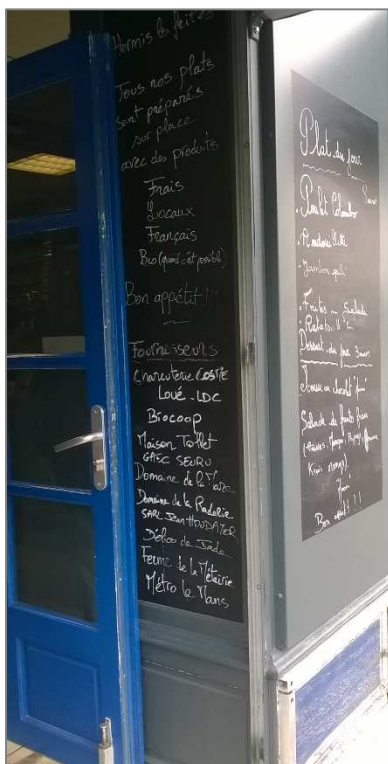 Hormis les frites
Tous nos plats
sont préparés
sur place
avec des produits
Frais
Locaux
Français
Bio (quand c'est possible)
Bon appétit !!!
Fournisseurs
Charcuterie COSME
Loué - LDC
Biocoop
Maison Tollet
GAEC SEURU
Domaine de la
Domaine de la
SARL Jean HOUDAYER
Délices de Jade
Ferme de la Métairie
Métro le Mans
Plat du jour
Poulet Colombo
Andouillette
Jambon grillé
Frites - Salade
Ratatouille
Dessert du jour 3 euros
Salade de fruits frais
Kiwi
Miam
Bon appétit !!!